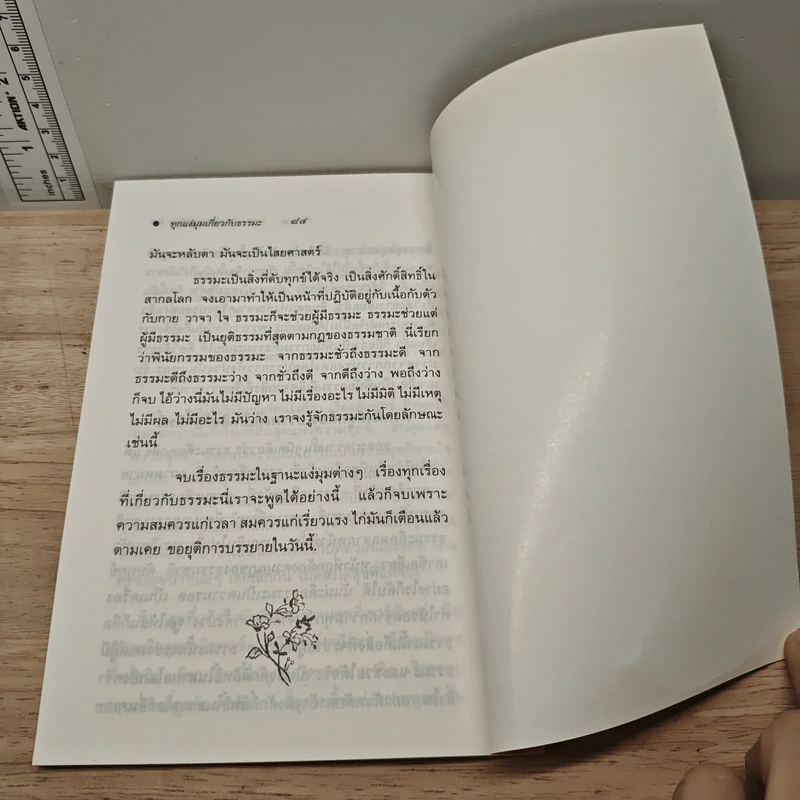 ● ทุกแง่มุมเกี่ยวกับธรรมะ ๘๔
มันจะหลับตา มันจะเป็นไสยศาสตร์
ธรรมะเป็นสิ่งที่ดับทุกข์ได้จริง เป็นสิ่งศักดิ์สิทธิ์ใน
สากลโลก จงเอามาทำให้เป็นหน้าที่ปฏิบัติอยู่กับเนื้อกับตัว
กับกาย วาจา ใจ ธรรมะก็จะช่วยผู้มีธรรมะ ธรรมะช่วยแต่
ผู้มีธรรมะ เป็นยุติธรรมที่สุดตามกฎของธรรมชาติ นี่เรียก
ว่าพินัยกรรมของธรรมะ จากธรรมะชั่วถึงธรรมะดี จาก
ธรรมะดีถึงธรรมะว่าง จากชั่วถึงดี จากดีถึงว่าง พอถึงว่าง
ก็จบ ไอ้ว่างนี่มันไม่มีปัญหา ไม่มีเรื่องอะไร ไม่มีมิติ ไม่มีเหตุ
ไม่มีผล ไม่มีอะไร มันว่าง เราจงรู้จักธรรมะกันโดยลักษณะ
เช่นนี้
จบเรื่องธรรมะในฐานะแง่มุมต่างๆ เรื่องทุกเรื่อง
ที่เกี่ยวกับธรรมะนี่เราจะพูดได้อย่างนี้ แล้วก็จบเพราะ
ความสมควรแก่เวลา สมควรแก่เรี่ยวแรง ไก่มันก็เตือนแล้ว
ตามเคย ขอยุติการบรรยายในวันนี้.
inches 1 2
AKTION
1 2 3 4 5 6 7